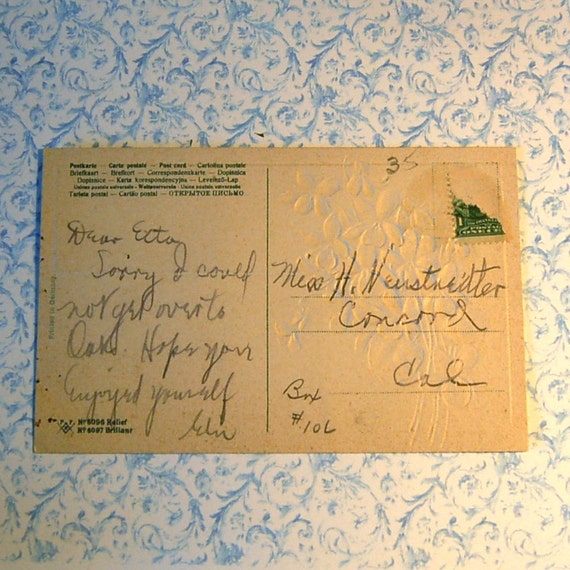 35
Postkarte – Carte postale – Post card – Cartolina postale
Briefkaart – Brefkort – Correspondenzkarte – Dopisnica
Dopisnice – Karta korespondencyjna – Levelező-Lap
Unione postale universale – Weltpostverein – Union postale universelle
Tarjeta postal – Cartão postal – ОТКРЫТОЕ ПИСЬМО
Dear Etta,
Sorry I could
not get over to
Oak. Hope you
Enjoyed yourself
Printed in Germany
No 6096 Relief
No 6097 Brillant
Miss H. Neustaedter
Concord
Cal
Box
#106